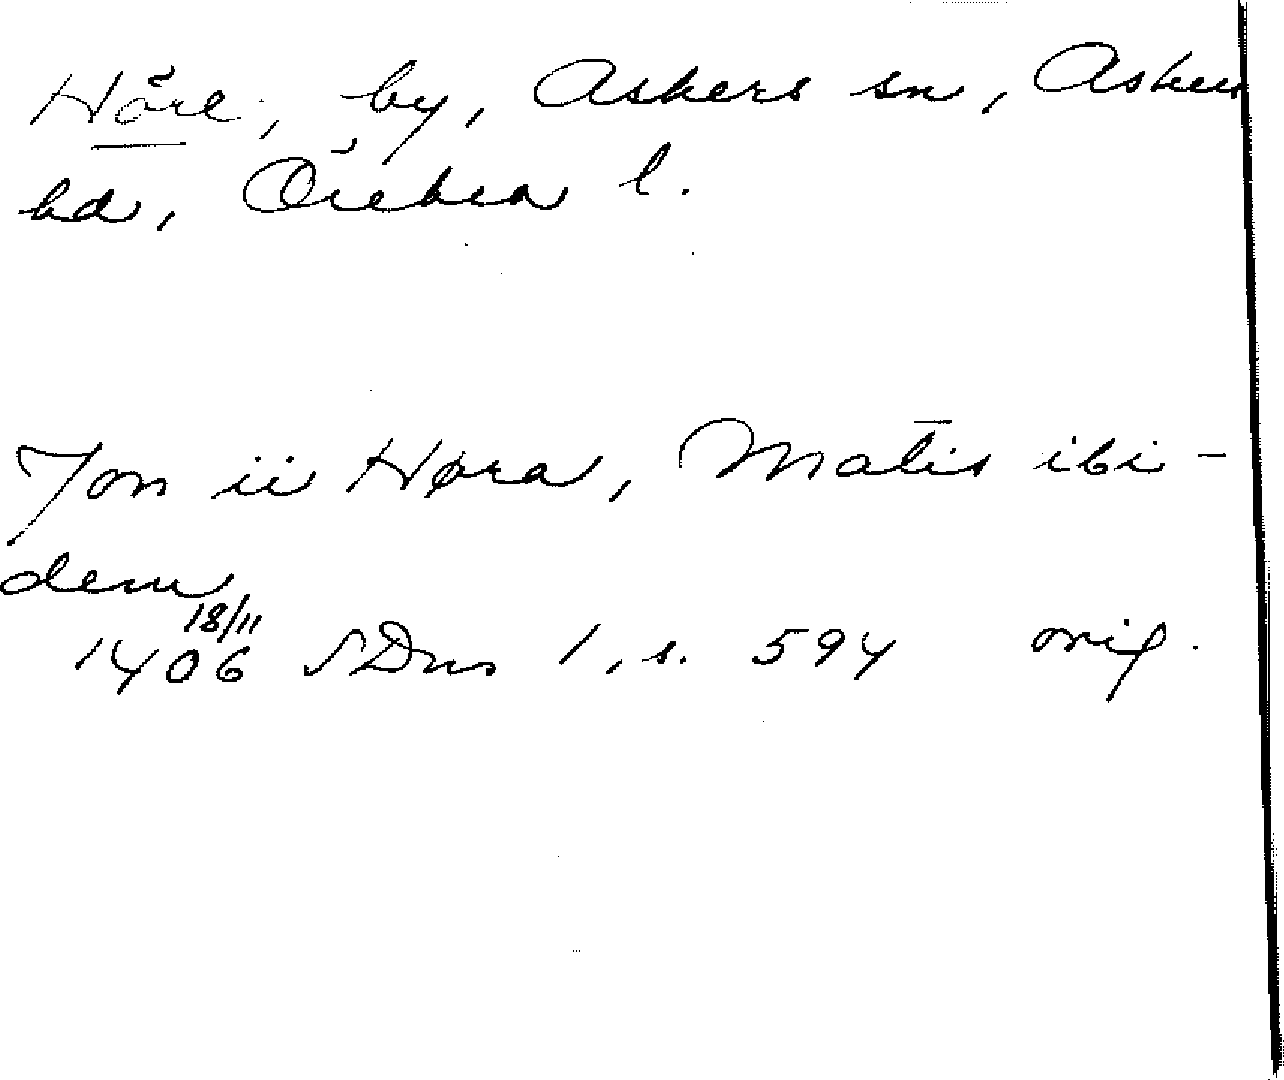 Höre, by, Askers sn, Askers
hd, Örebro l.
Jon ii Høra, Matis ibi-
dem
18/11
1406 SDns 1, s. 594 orig.